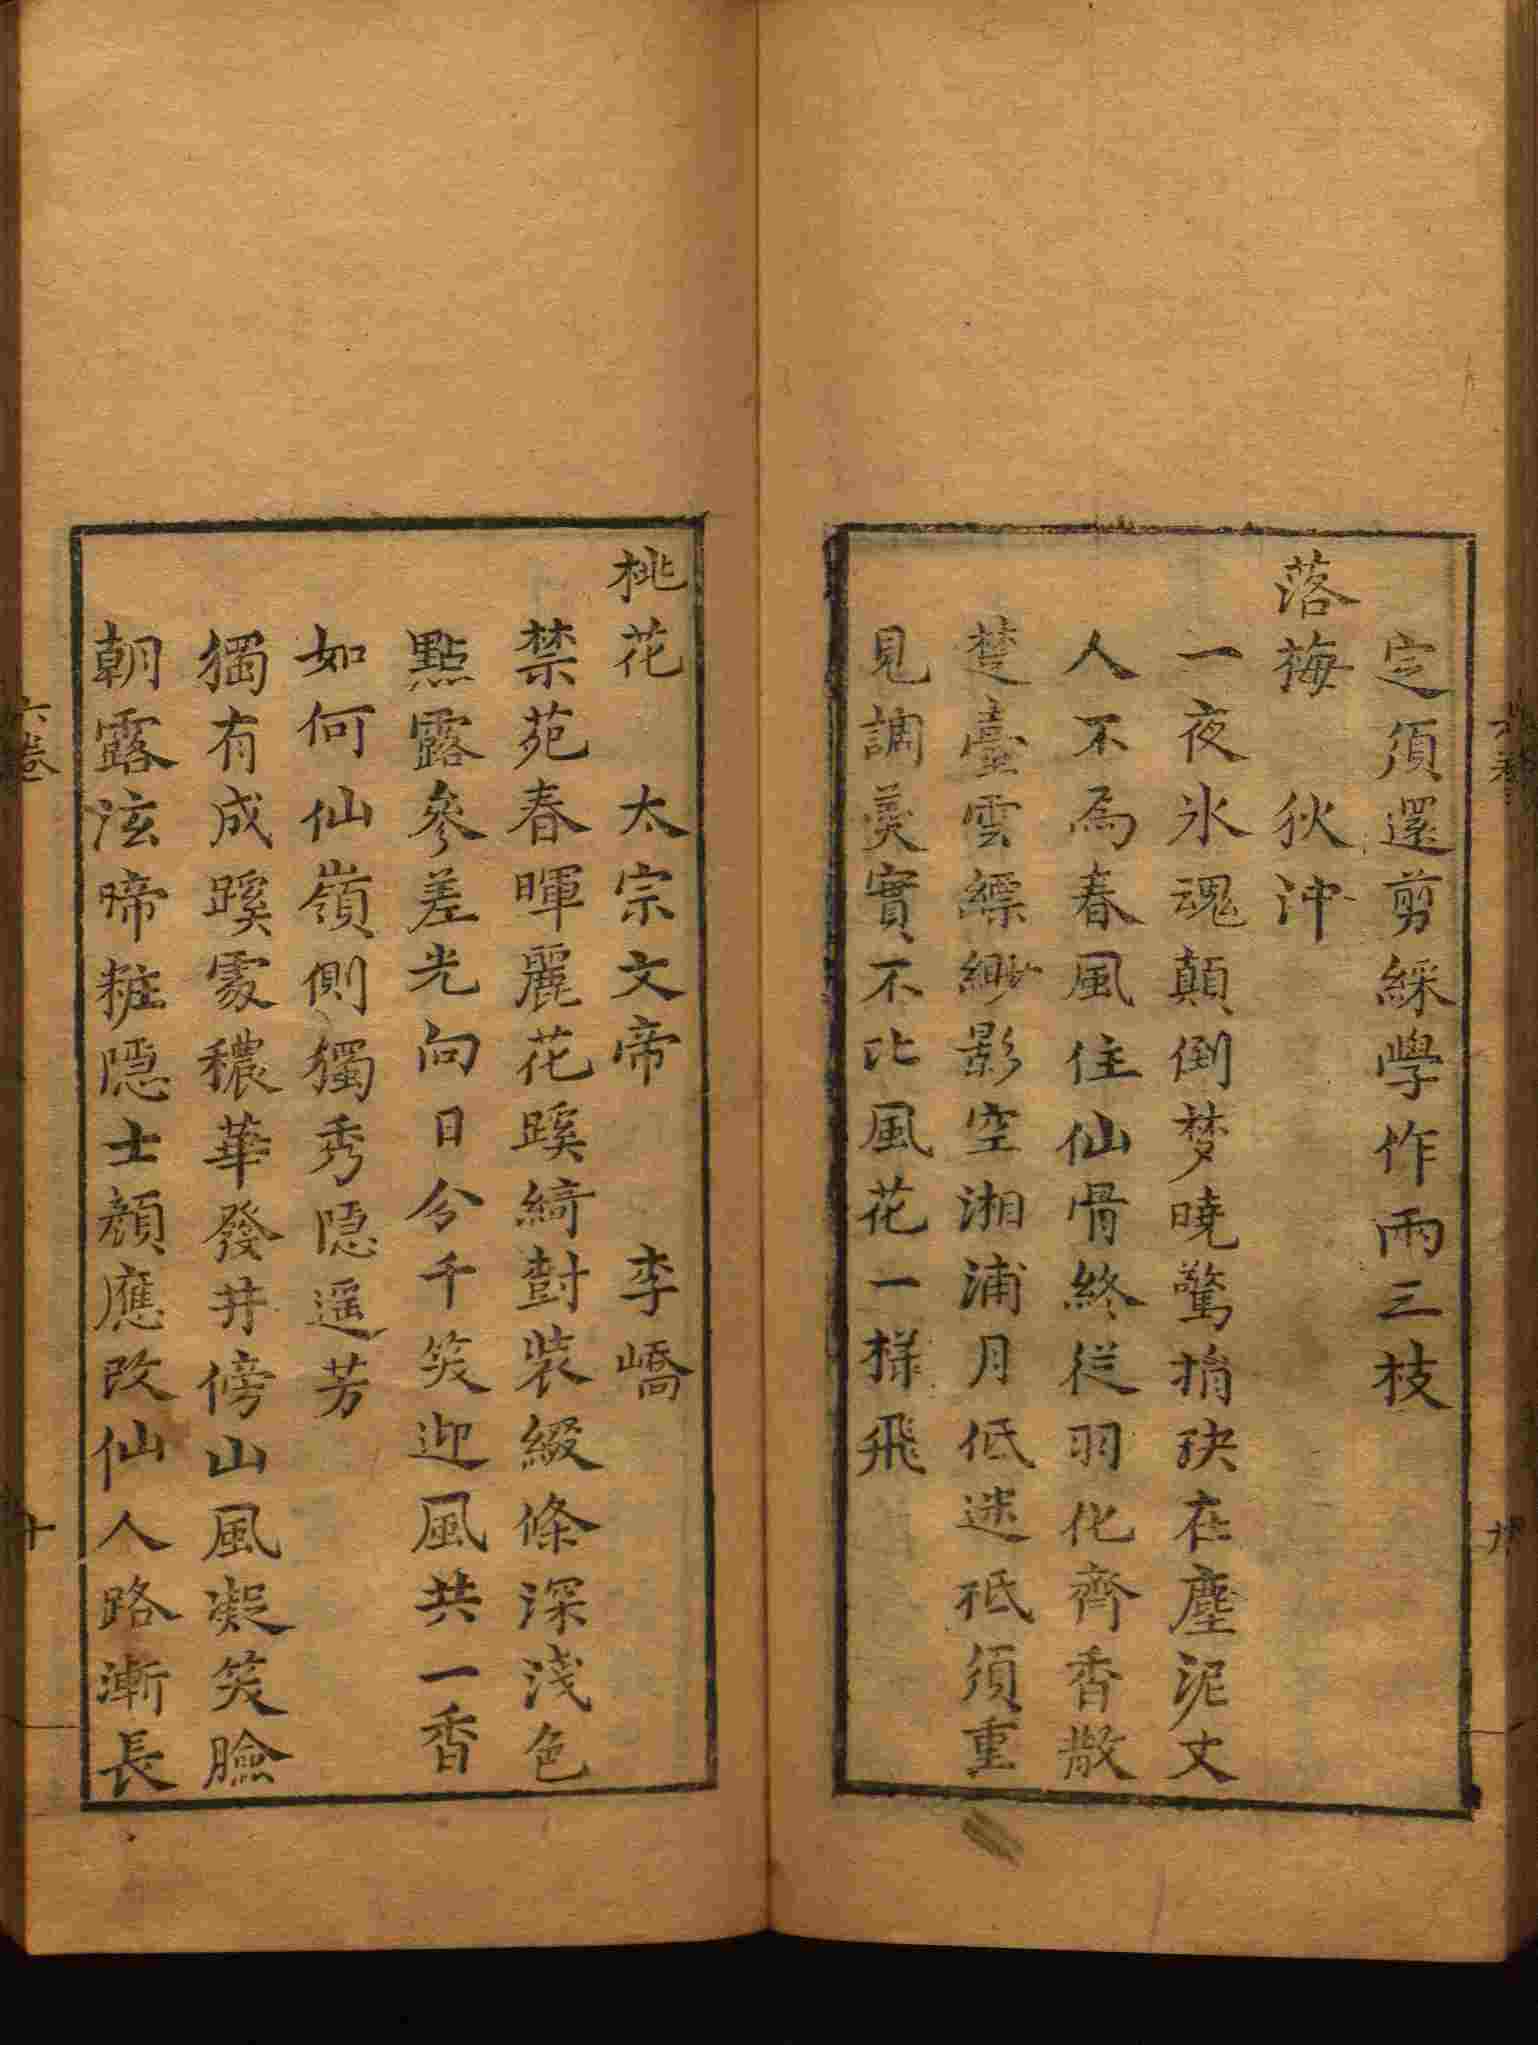 定須還剪綵學作兩三枝
落梅　狄沖
一夜氷魂顛倒梦曉驚捐玦在塵泥丈
人不為春風住仙骨終從羽化齊香散
楚臺雲縹緲影空湘浦月低迷秪須重
見調羹實不比風花一様飛
六卷
九
桃花　太宗文帝　李嶠
禁苑春暉麗花蹊綺對裝綴條深淺色
點露參差光向日分千笑迎風共一香
如何仙嶺側獨秀隠遥芳
獨有成蹊處穠華發井傍山風凝笑臉
朝露泫啼粧隠士顔應改仙人路漸長
六卷
十